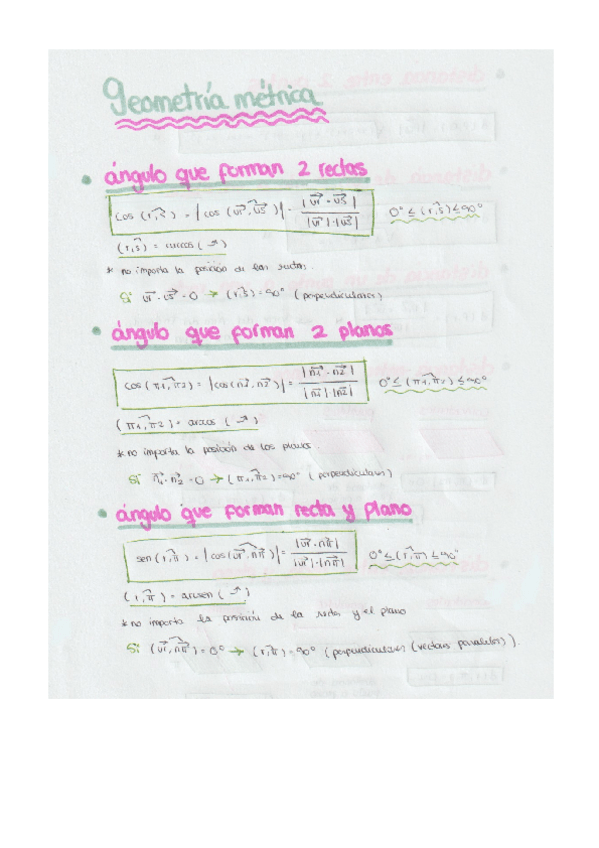 Geometría métrica
• ángulo que forman 2 rectas
cos (r,s) = |cos (vr, vs)| = |vr · vs| / |vr|·|vs|   0° ≤ (r,s) ≤ 90°
(r,s) = arccos (↗)
* no importa la posición de las rectas.
Si vr · vs = 0 → (r,s) = 90° (perpendiculares)
• ángulo que forman 2 planos
cos (π1, π2) = |cos (n1, n2)| = |n1 · n2| / |n1|·|n2|   0° ≤ (π1, π2) ≤ 90°
(π1, π2) = arccos (↗)
* no importa la posición de los planos.
Si n1 · n2 = 0 → (π1, π2) = 90° (perpendiculares)
• ángulo que forman recta y plano
sen (r, π) = |cos (vr, nπ)| = |vr · nπ| / |vr|·|nπ|   0° ≤ (r, π) ≤ 90°
(r, π) = arcsen (↗)
* no importa la posición de la recta y el plano
Si (vr, nπ) = 0° → (r, π) = 90° (perpendiculares (vectores paralelos)).